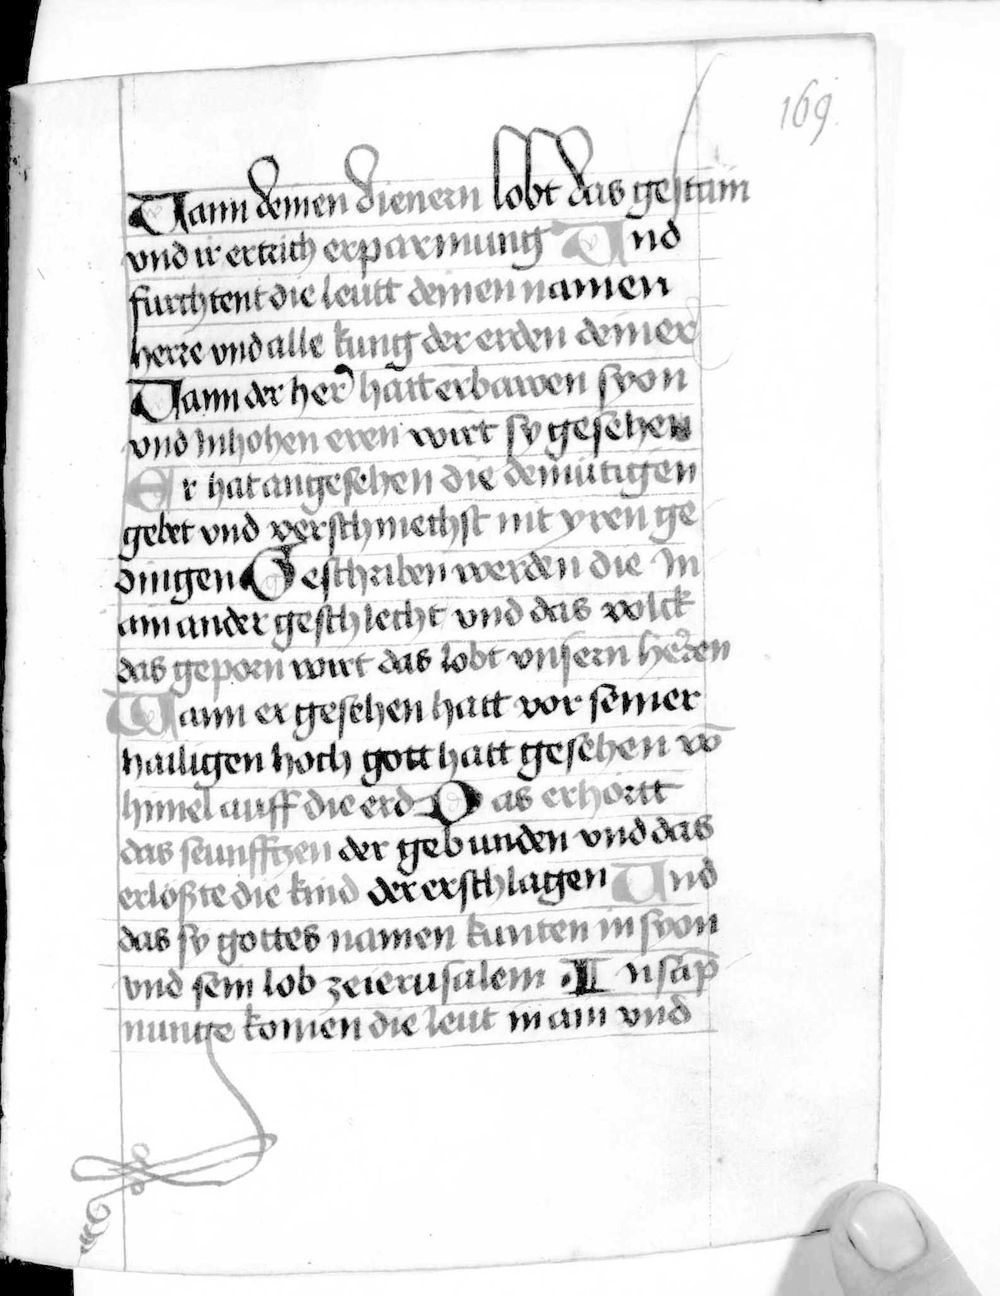 169
Wann deinen dienern lobt das gestain
vnd ir ertrich erparmung Und
furchtent die leutt deinen namen
herre vnd alle kung der erden deiner
Wann der her hatt erbawen syon
vnd Inhohen eren wirt sy gesehen
Er hat angesehen die demutigen
gebet vnd verschmechst nit yren ge
dingen Geschriben werden die In
ain ander geschlecht vnd das volck
das geporn wirt das lobt vnsern herren
Wann er gesehen hatt vor seiner
hailigen hoch gott hatt gesehen vō
himel auff die erd Das erhortt
das seunfftzen der gebunden vnd das
erloßte die kind der erschlagen Und
das sy gottes namen kunten in syon
vnd sein lob zeierusalem In sap
nunge komen die leut in ain vnd